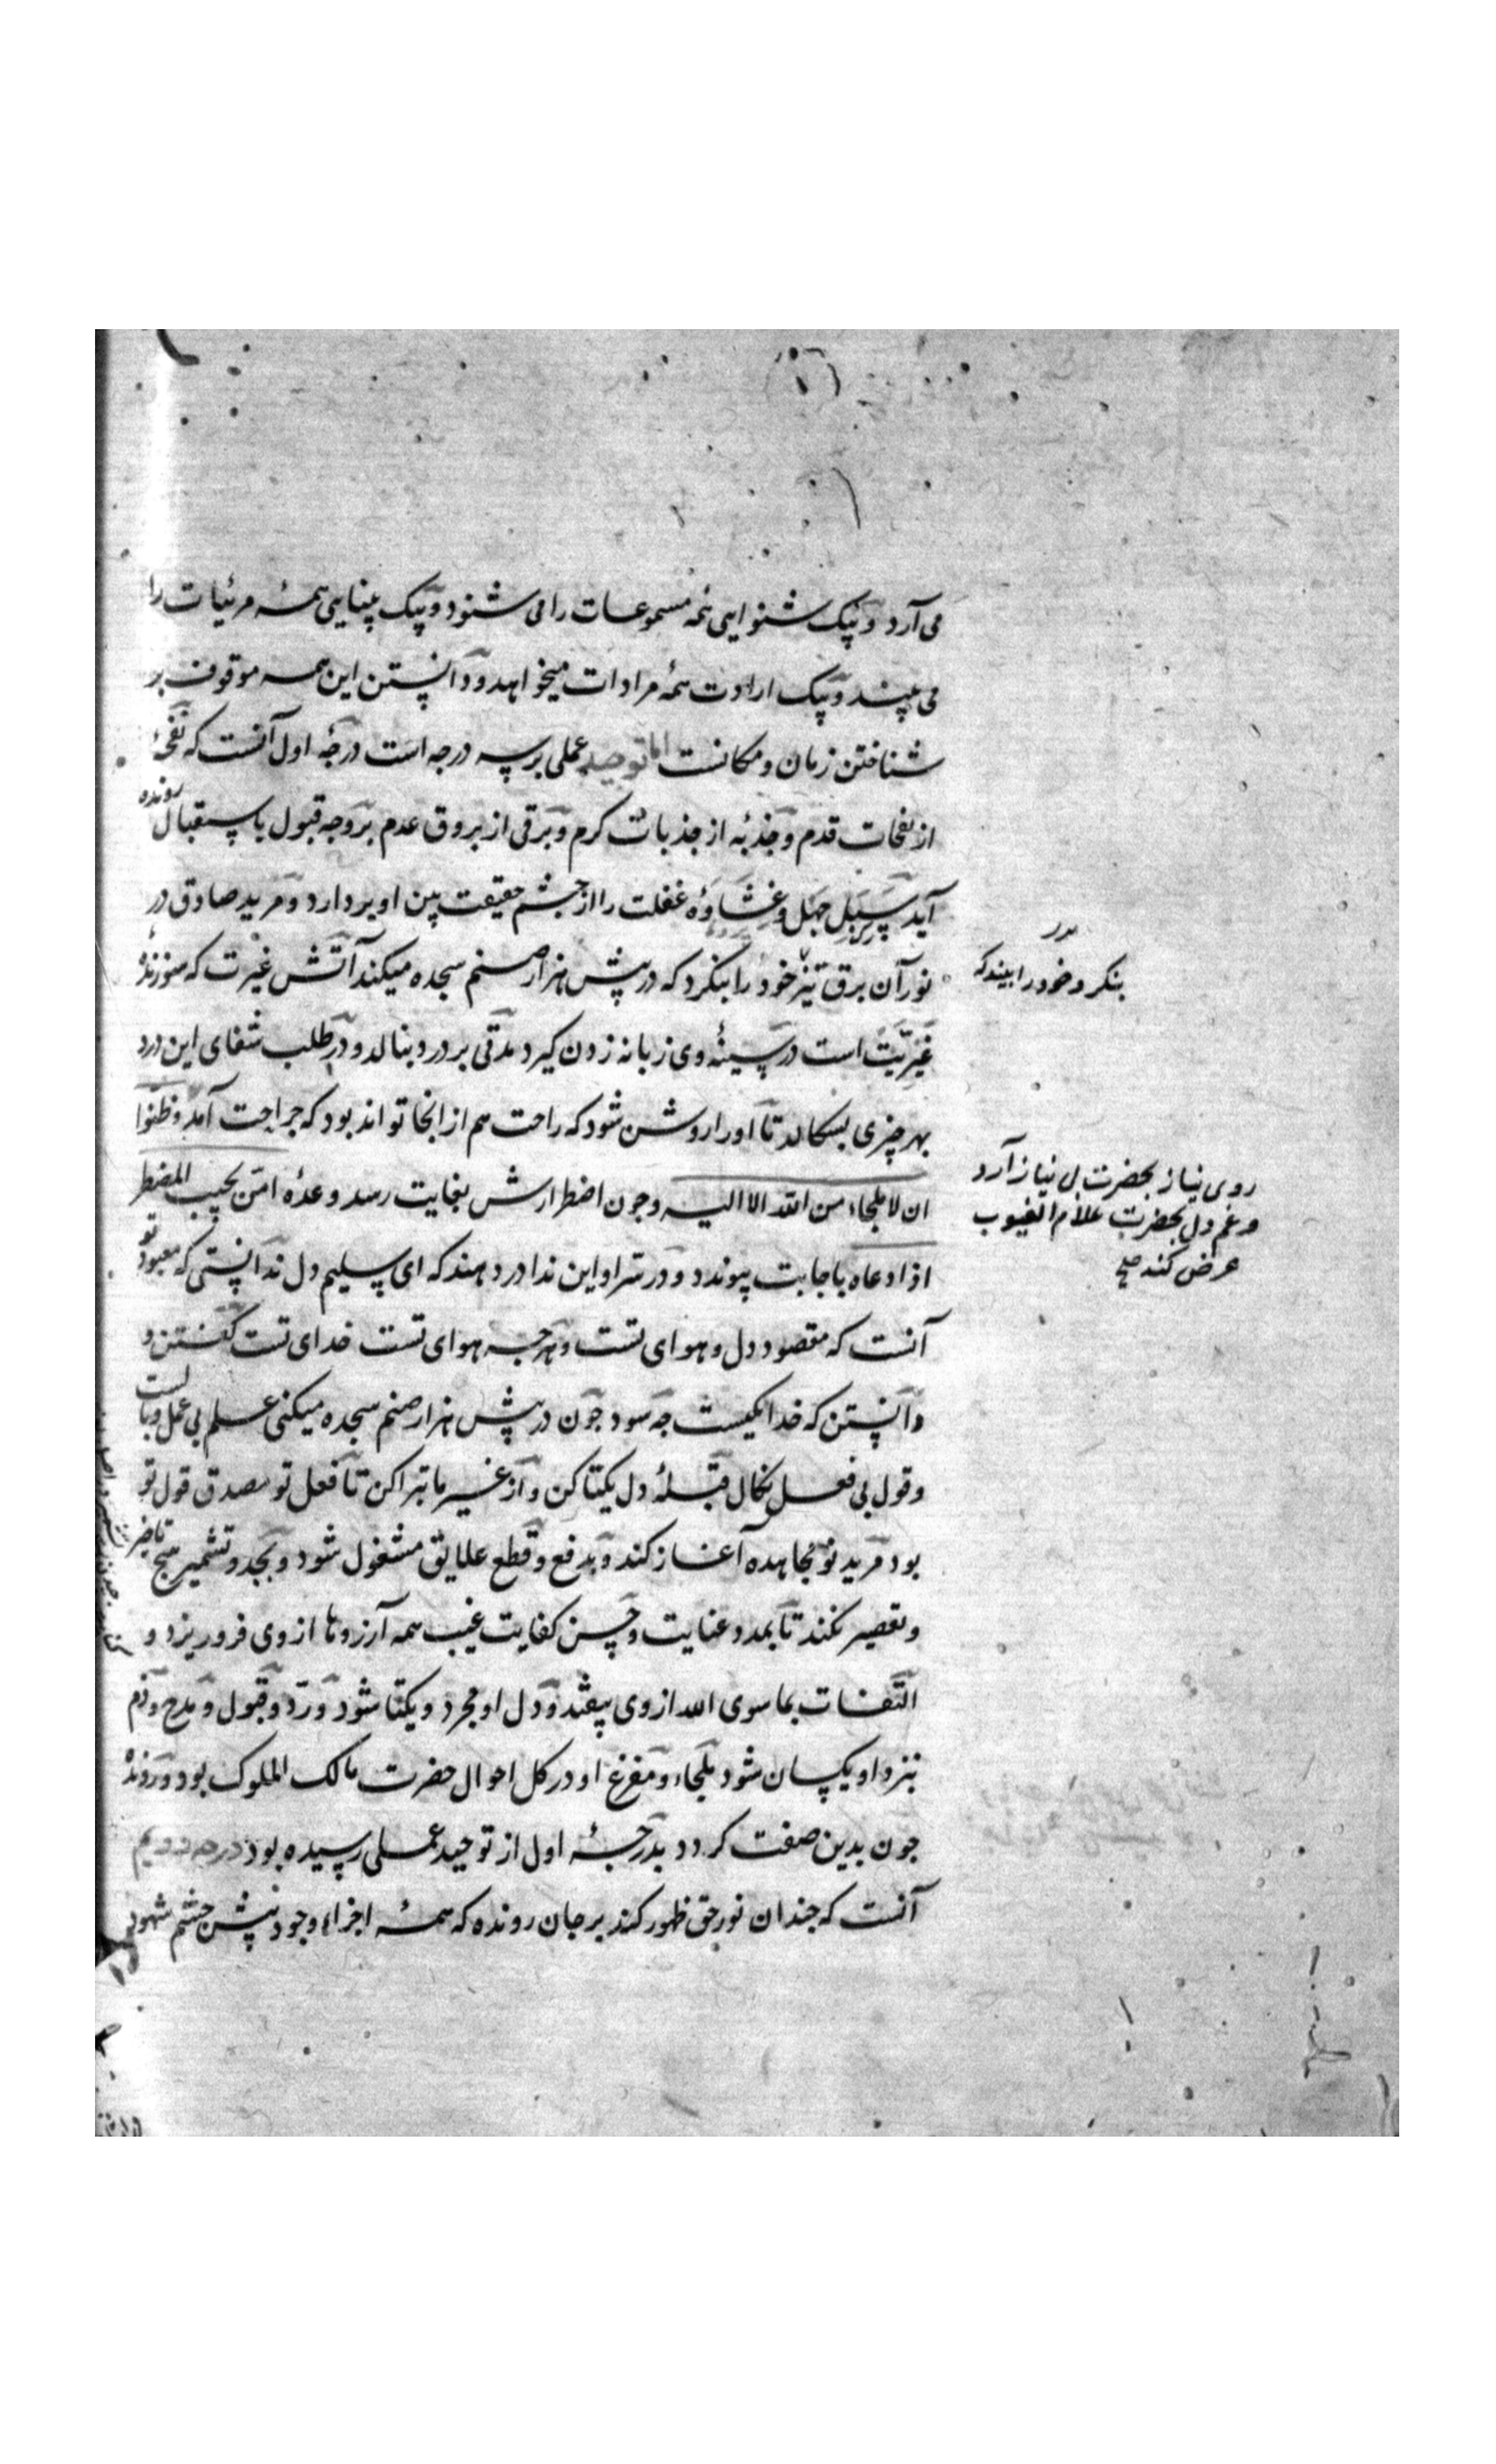 می آرد و بیک شنوایی همه مسموعات را می شنود و بیک بینایی همه مرئیات را
می بیند و بیک ارادت همه مرادات میخواهد و دانستن این همه موقوف بر
شناختن زمان و مکانست اما توحید عملی بر سه درجه است درجه اول آنست که نفحهٔ
از نفحات قدم و جذبهٔ از جذبات کرم و برقی از بروق عدم بر وجه قبول باستقبال رونده
آید سبل جهل و غشاوهٔ غفلت را از چشم حقیقت بین او بردارد و مرید صادق در
نور آن برق تیز خود را بنکرد که در پیش هزار صنم سجده میکند آتش غیرت که سوزندهٔ
بنکرد و خود را بیند که
غیریّت است در سینهٔ وی زبانه زدن کیرد مدتی بر درد بنالد و در طلب شفای این درد
بهر چیزی بسکالد تا او را روشن شود که راحت هم از انجا تواند بود که جراحت آمد و ظنوا
ان لا ملجاء من الله الا الیه و چون اضطرارش بغایت رسد وعدهٔ امن یجیب المضطر
روی نیاز بحضرت بی نیاز آرد
و غم دل بحضرت علام الغیوب
عرض کند صح
اذا دعاه باجابت پیوندد و در سر او این ندا در دهند که ای سلیم دل ندانستی که معبود تو
آنست که مقصود دل و هوای تست و هرچه هوای تست خدای تست کفتن و
دانستن که خدا یکیست چه سود چون در پیش هزار صنم سجده میکنی علم بی عمل وبالست
و قول بی فعل نکال قبلهٔ دل یکتا کن و از غیر ما تبرا کن تا فعل تو مصدق قول تو
بود مرید نو مجاهده آغاز کند و بدفع و قطع علایق مشغول شود و بجد و تشمیر هیچ تاخیر
و تقصیر نکند تا بمدد عنایت و حسن کفایت غیب همه آرزوها از وی فرو ریزد و
التفات بما سوی الله از وی بیفتد و دل او مجرد و یکتا شود و رد و قبول و مدح و ذم
بنزد او یکسان شود ملجاء و مفزع او در کل احوال حضرت مالک الملوک بود و رونده
چون بدین صفت کردد بدرجهٔ اول از توحید عملی رسیده بود درجه دویم
آنست که چندان نور حق ظهور کند بر جان رونده که همه اجزاء وجود پیش چشم شهود